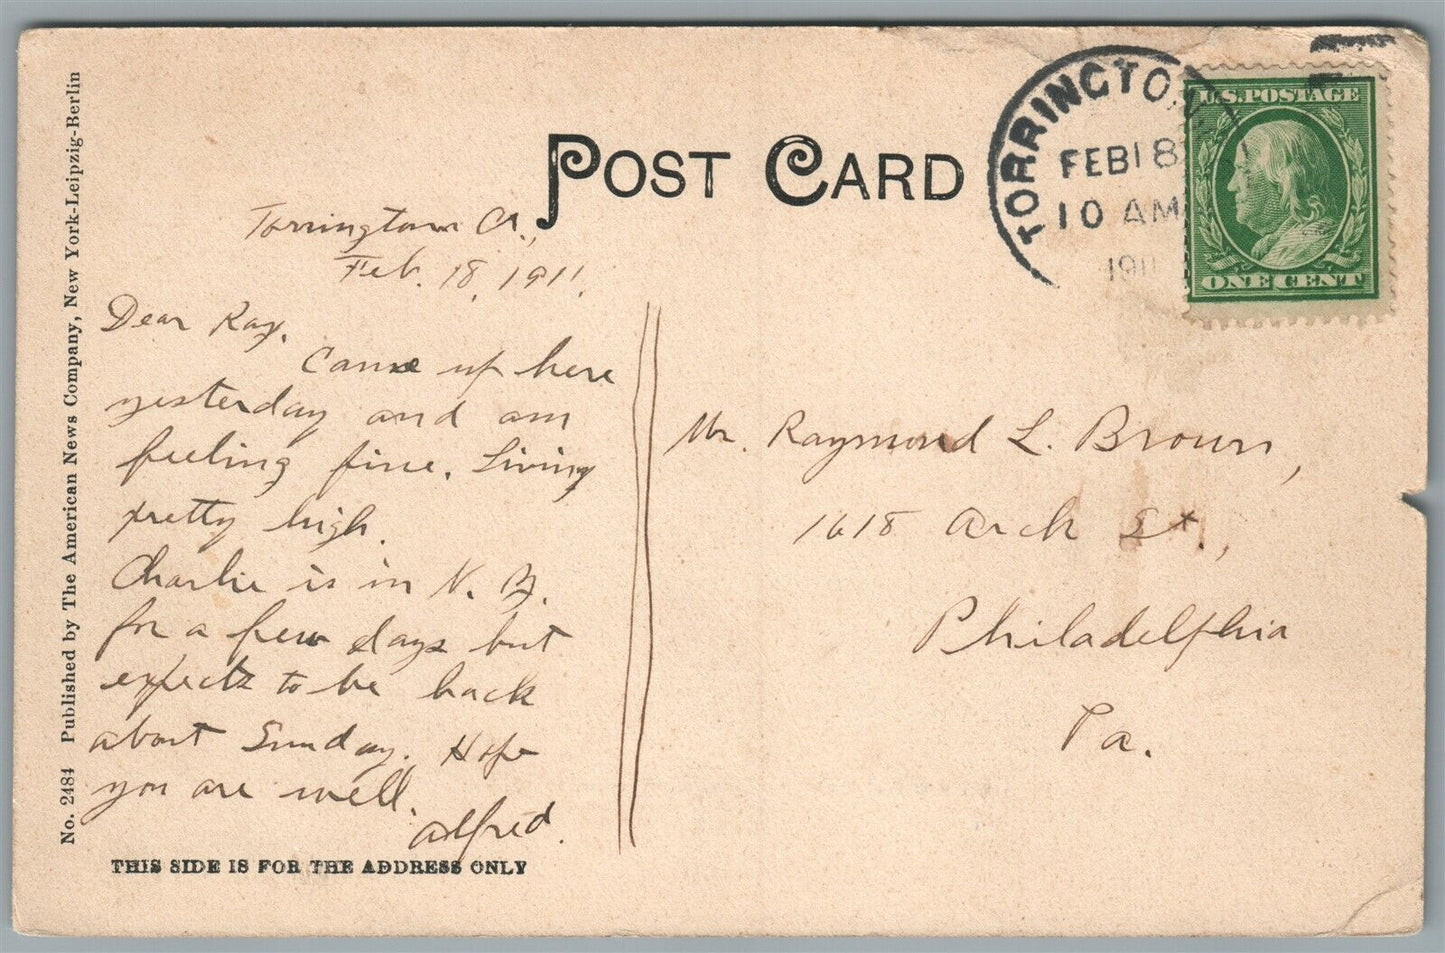 POST CARD
TORRINGTON
FEB 18
10 AM
1911
U.S. POSTAGE
ONE CENT
No. 2484 Published by The American News Company, New York-Leipzig-Berlin
Torrington Ct.,
Feb. 18, 1911.
Dear Ray.
Came up here
yesterday and am
feeling fine. Living
pretty high.
Charlie is in N. Y.
for a few days but
expects to be back
about Sunday. Hope
you are well.
Alfred.
THIS SIDE IS FOR THE ADDRESS ONLY
Mr. Raymond L. Brown,
1618 Arch St.,
Philadelphia
Pa.